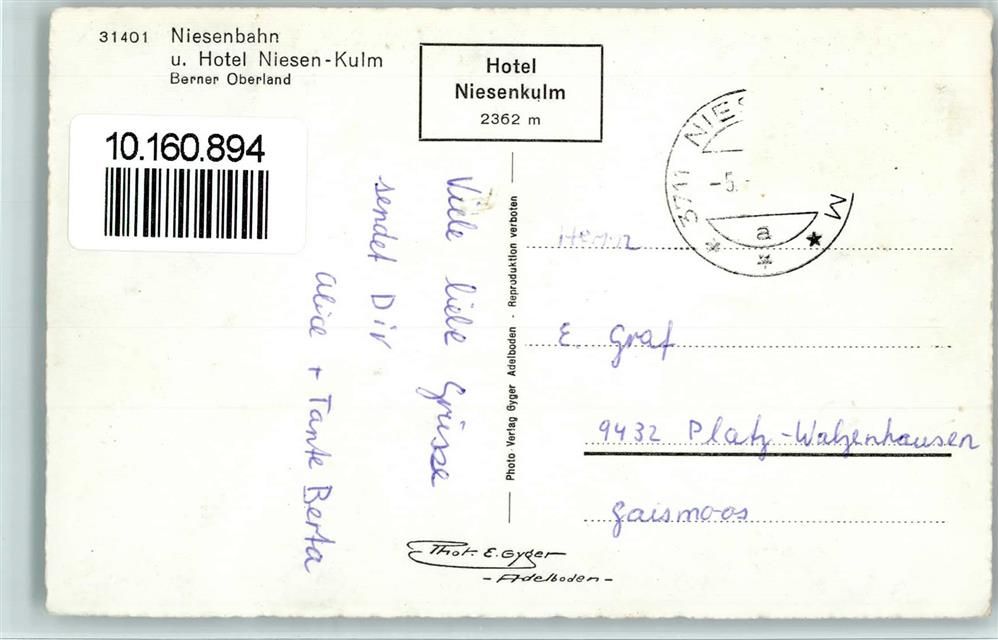 31401 Niesenbahn
u. Hotel Niesen-Kulm
Berner Oberland
Hotel
Niesenkulm
2362 m
10.160.894
3711 NIES M
-5.-
a
Viele liebe Grüsse
sendet Dir
Alice + Tante Berta
Photo-Verlag Gyger Adelboden - Reproduktion verboten
Herrn
E. Graf
9432 Platz-Walzenhausen
Gaismoos
Phot. E. Gyger
- Adelboden -